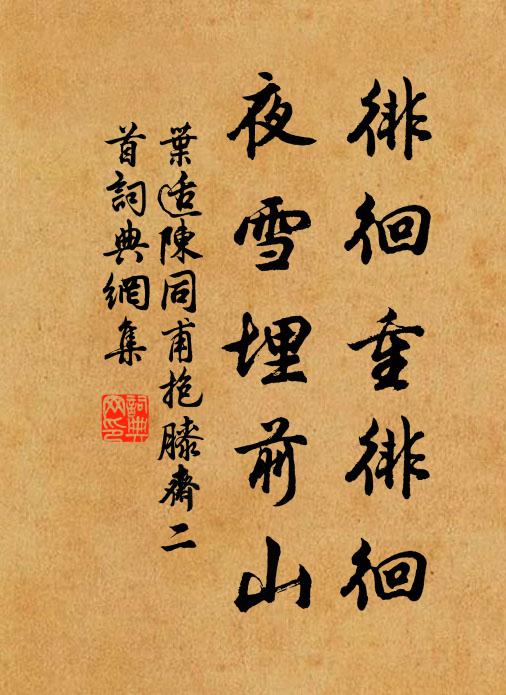 徘徊重徘徊
夜雪埋前山
葉适陳同甫抱膝齋二
首詞典網集
詞典
网印